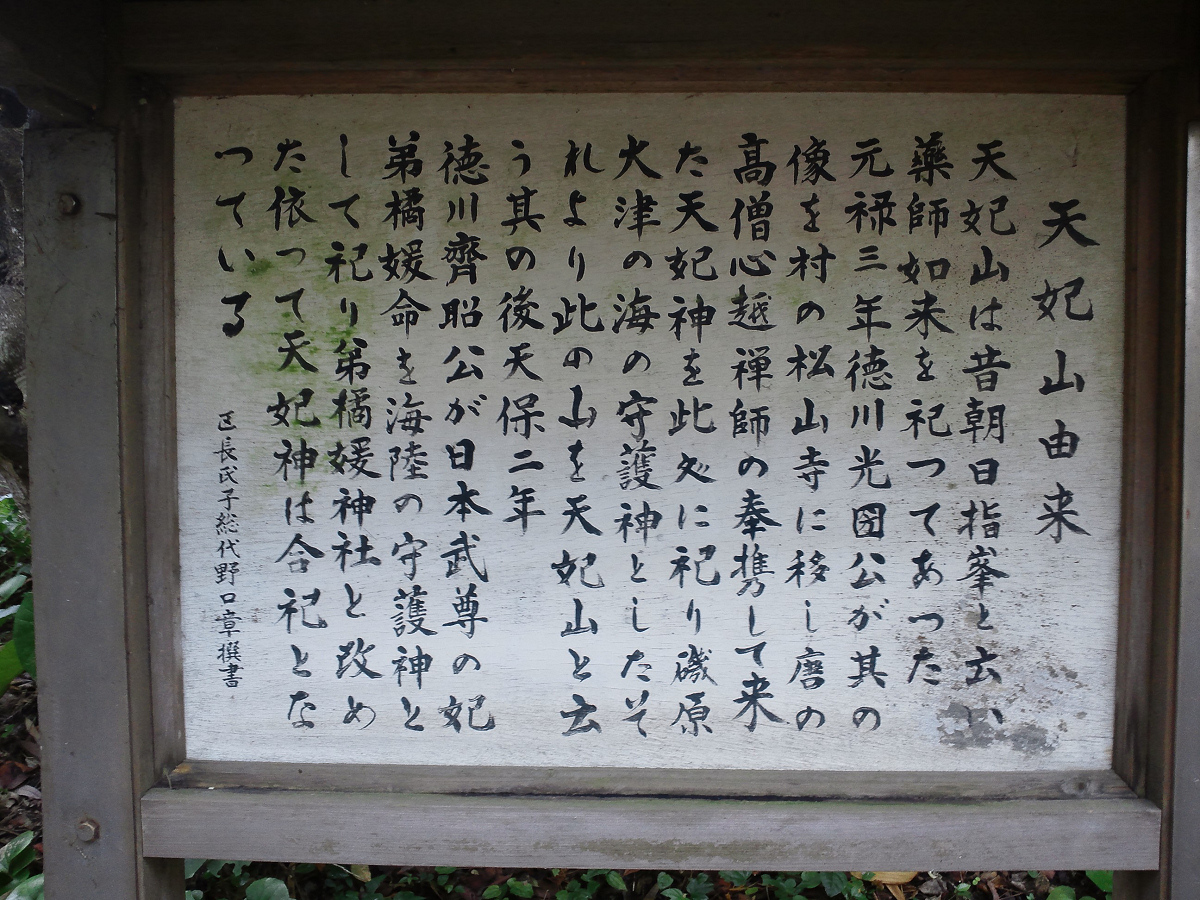 天妃山由来
天妃山は昔朝日指峯と云い
藥師如来を祀つてあつた
元禄三年徳川光圀公が其の
像を村の松山寺に移し唐の
高僧心越禅師の奉携して来
た天妃神を此処に祀り磯原
大津の海の守護神としたそ
れより此の山を天妃山と云
う其の後天保二年
徳川齊昭公が日本武尊の妃
弟橘媛命を海陸の守護神と
して祀り弟橘媛神社と改め
た依って天妃神は合祀とな
つている
区長氏子総代野口章撰書